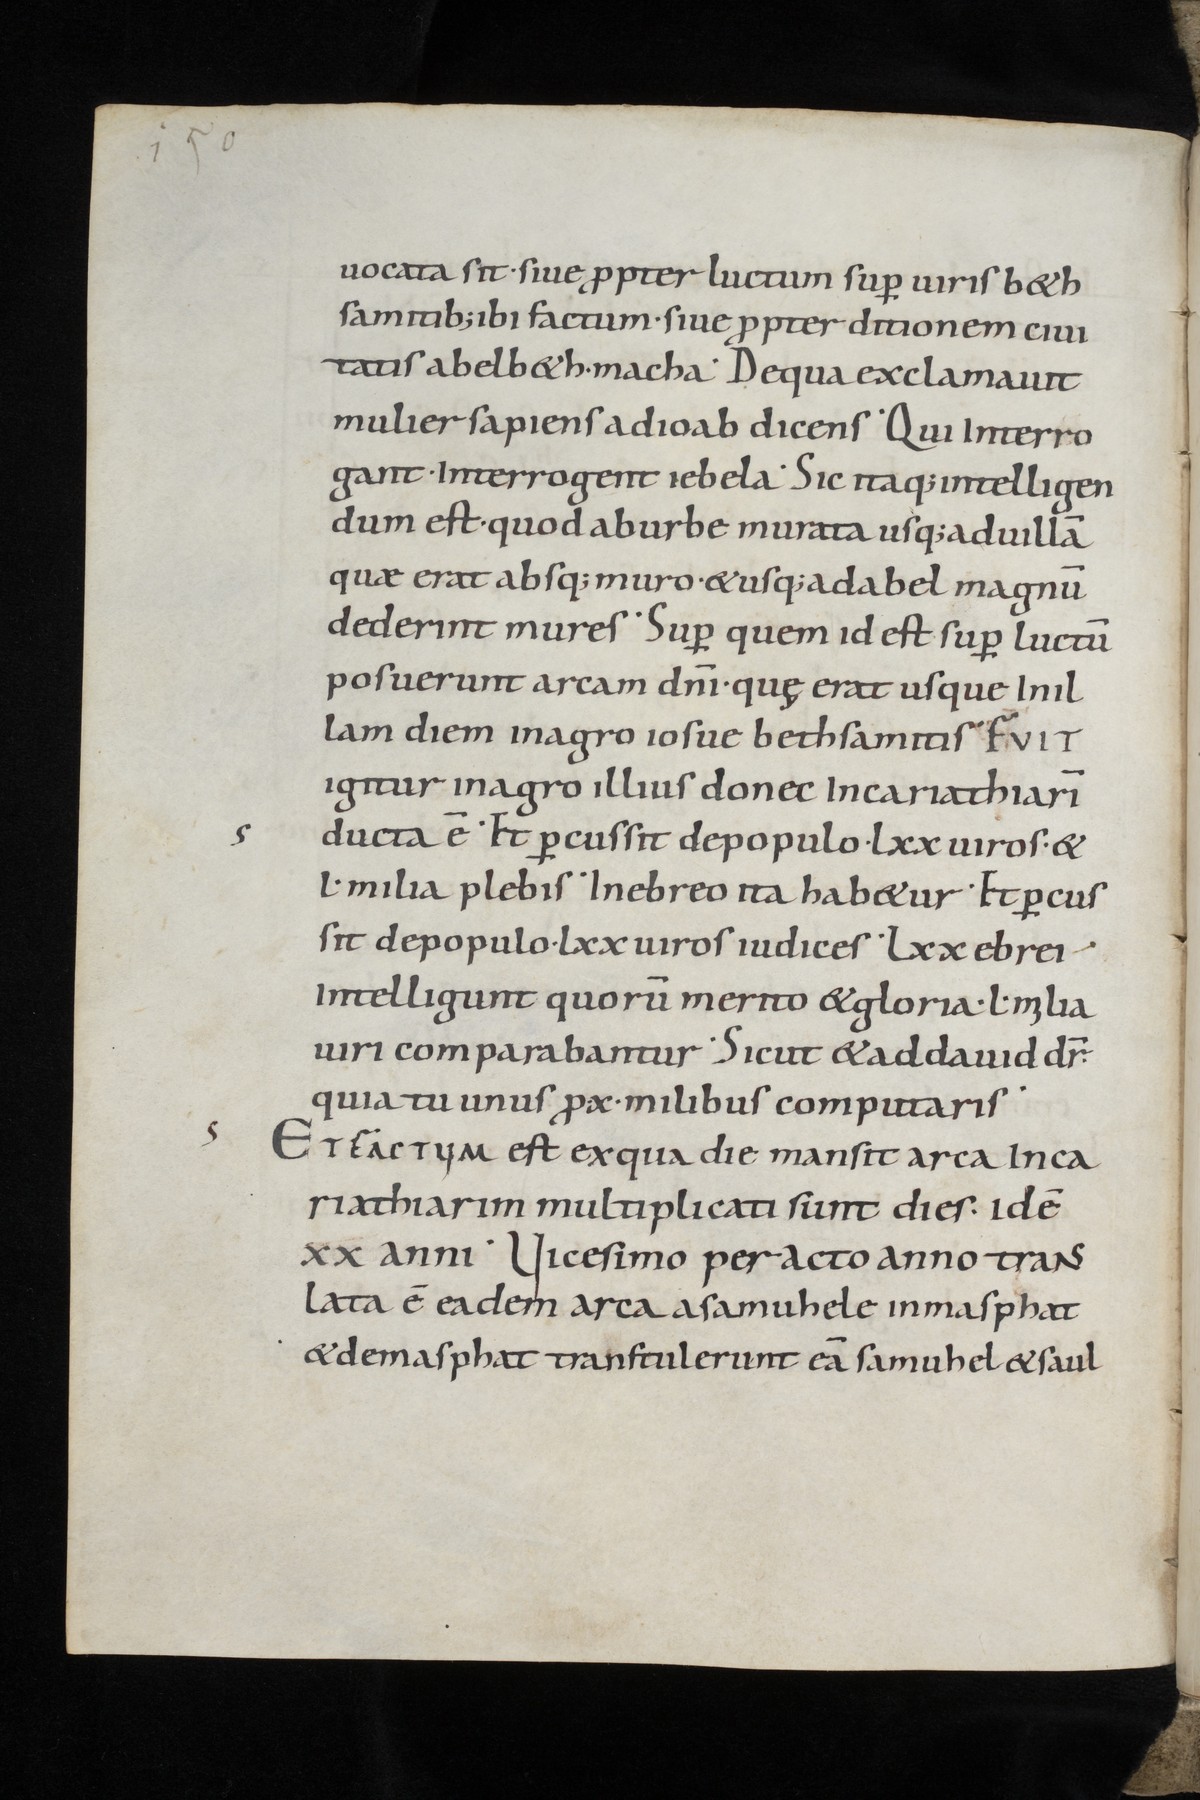 150
uocata sit · siue ꝓpter luctum suꝑ uiris b&h
samitib; ibi factum · siue ꝓpter ditionem ciui
tatis abelb&h · macha · De qua exclamauit
mulier sapiens ad ioab dicens · Qui Interro
gant · Interrogent iebela · Sic itaq; intelligen
dum est · quod ab urbe murata usq; ad uillā
quæ erat absq; muro · & usq; ad abel magnū
dederint mures · Suꝑ quem id est suꝑ luctū
posuerunt arcam dn̄i · quę erat usque In il
lam diem in agro iosue bethsamitis · FVIT
igitur in agro illius donec In cariathiarī
s ducta ē · Et ꝑcussit de populo · lxx uiros · &
l · milia plebis · In ebreo ita hab&ur · Et ꝑcus
sit de populo · lxx uiros iudices · Lxx ebrei ·
Intelligunt quorū merito & gloria · l · mlia
uiri comparabantur · Sicut & ad dauid dr̄ ·
quia tu unus ꝓ x · milibus computaris ·
s ET FACTUM est ex qua die mansit arca In ca
riathiarim multiplicati sunt dies · idē
xx anni · Vicesimo peracto anno trans
lata ē eadem arca a samuhele in masphat
& de masphat transtulerunt eā samuhel & saul